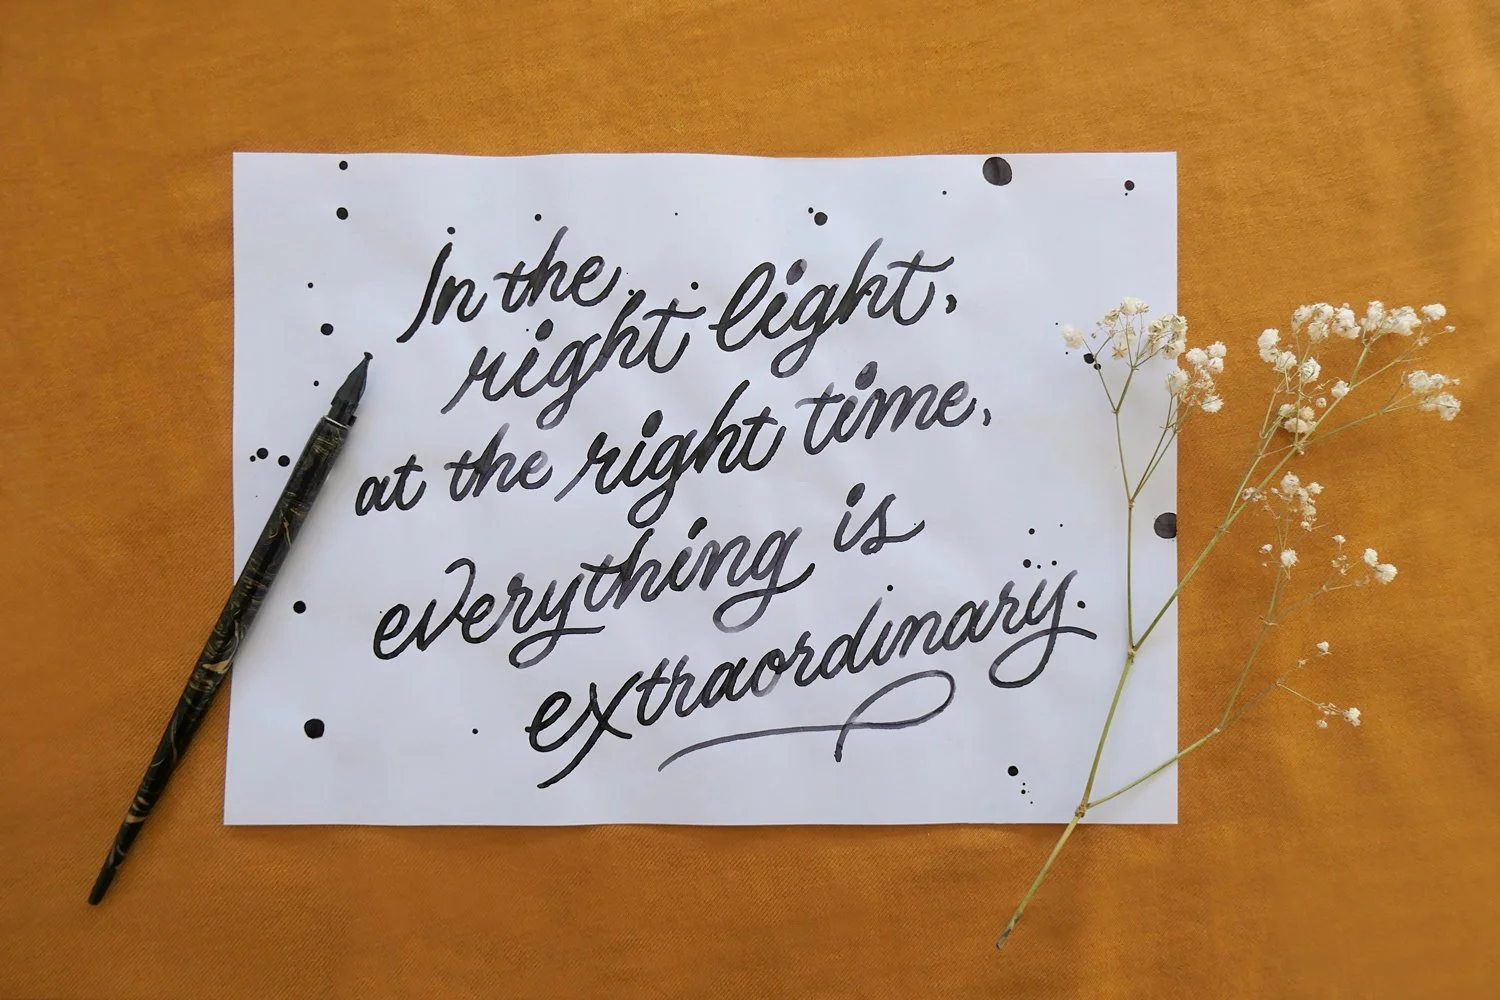 In the
right light,
at the right time,
everything is
extraordinary.